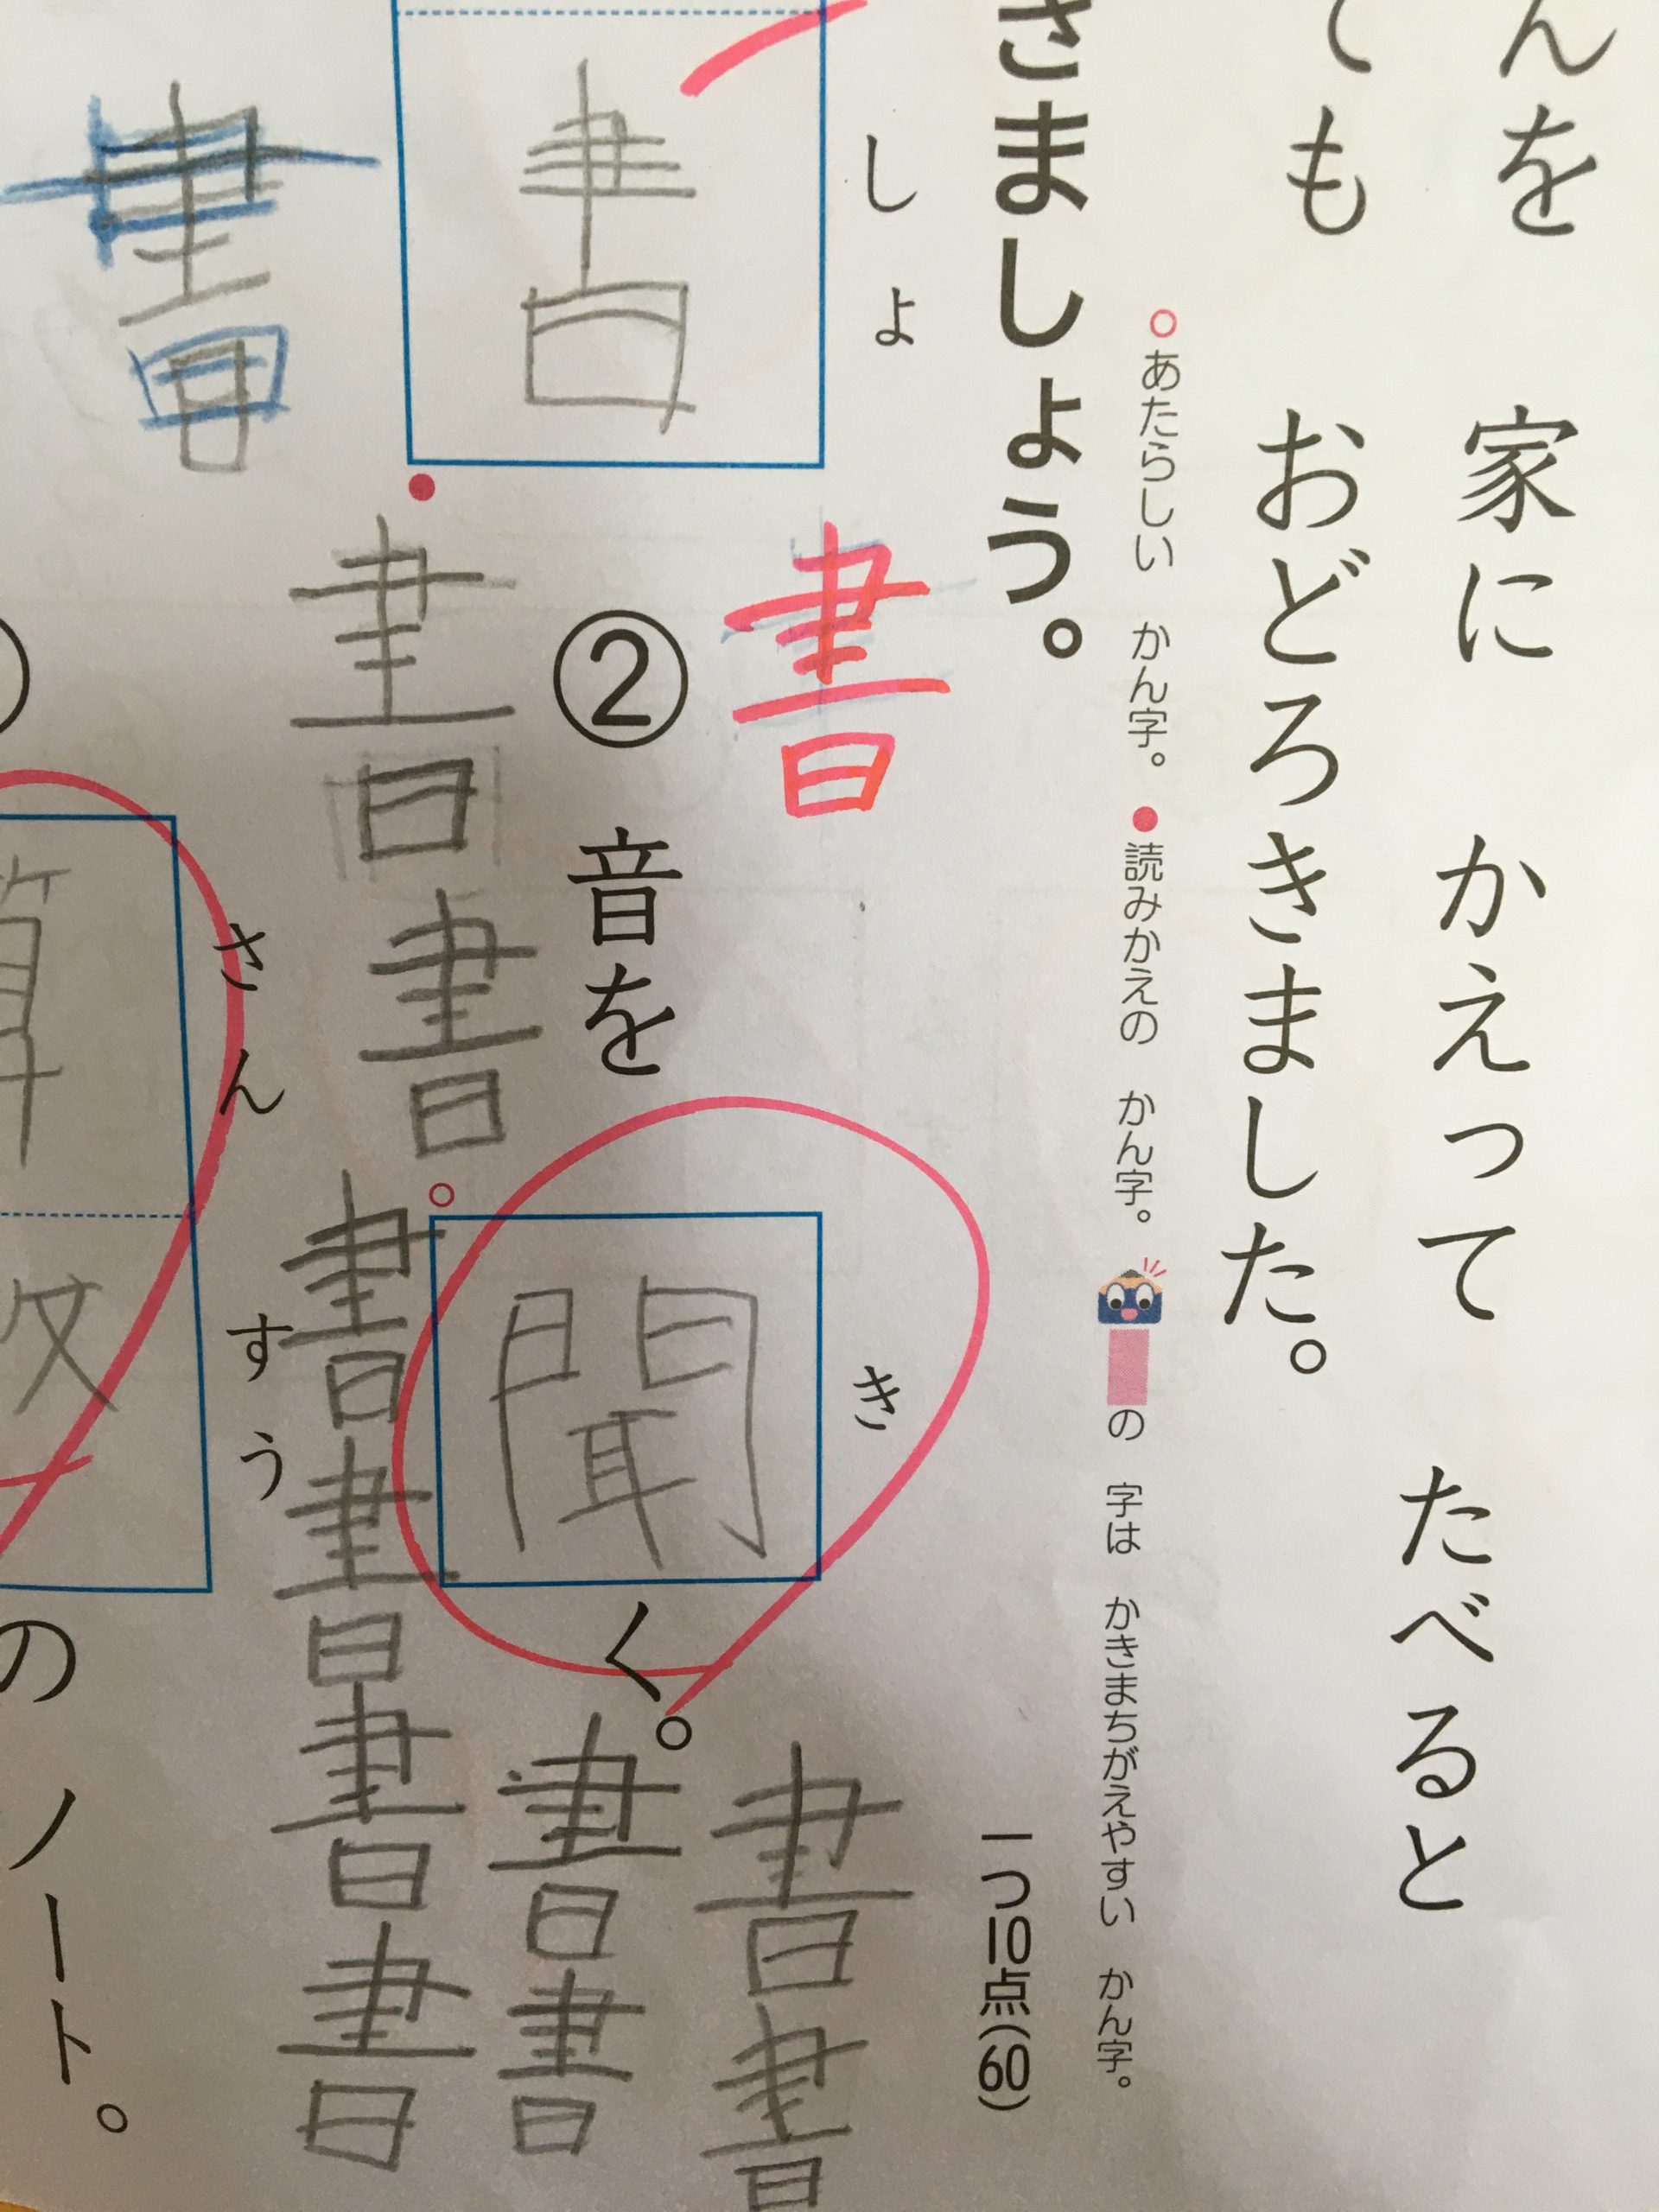 んを 家に かえって たべると
ても おどろきました。
○あたらしい かん字。 ●読みかえの かん字。 の 字は かきまちがえやすい かん字。
さましょう。
一つ10点(60)
しょ
書
書
②音を聞く。
き
書書
書書
書書書書書書
書
さんすう
のノート。